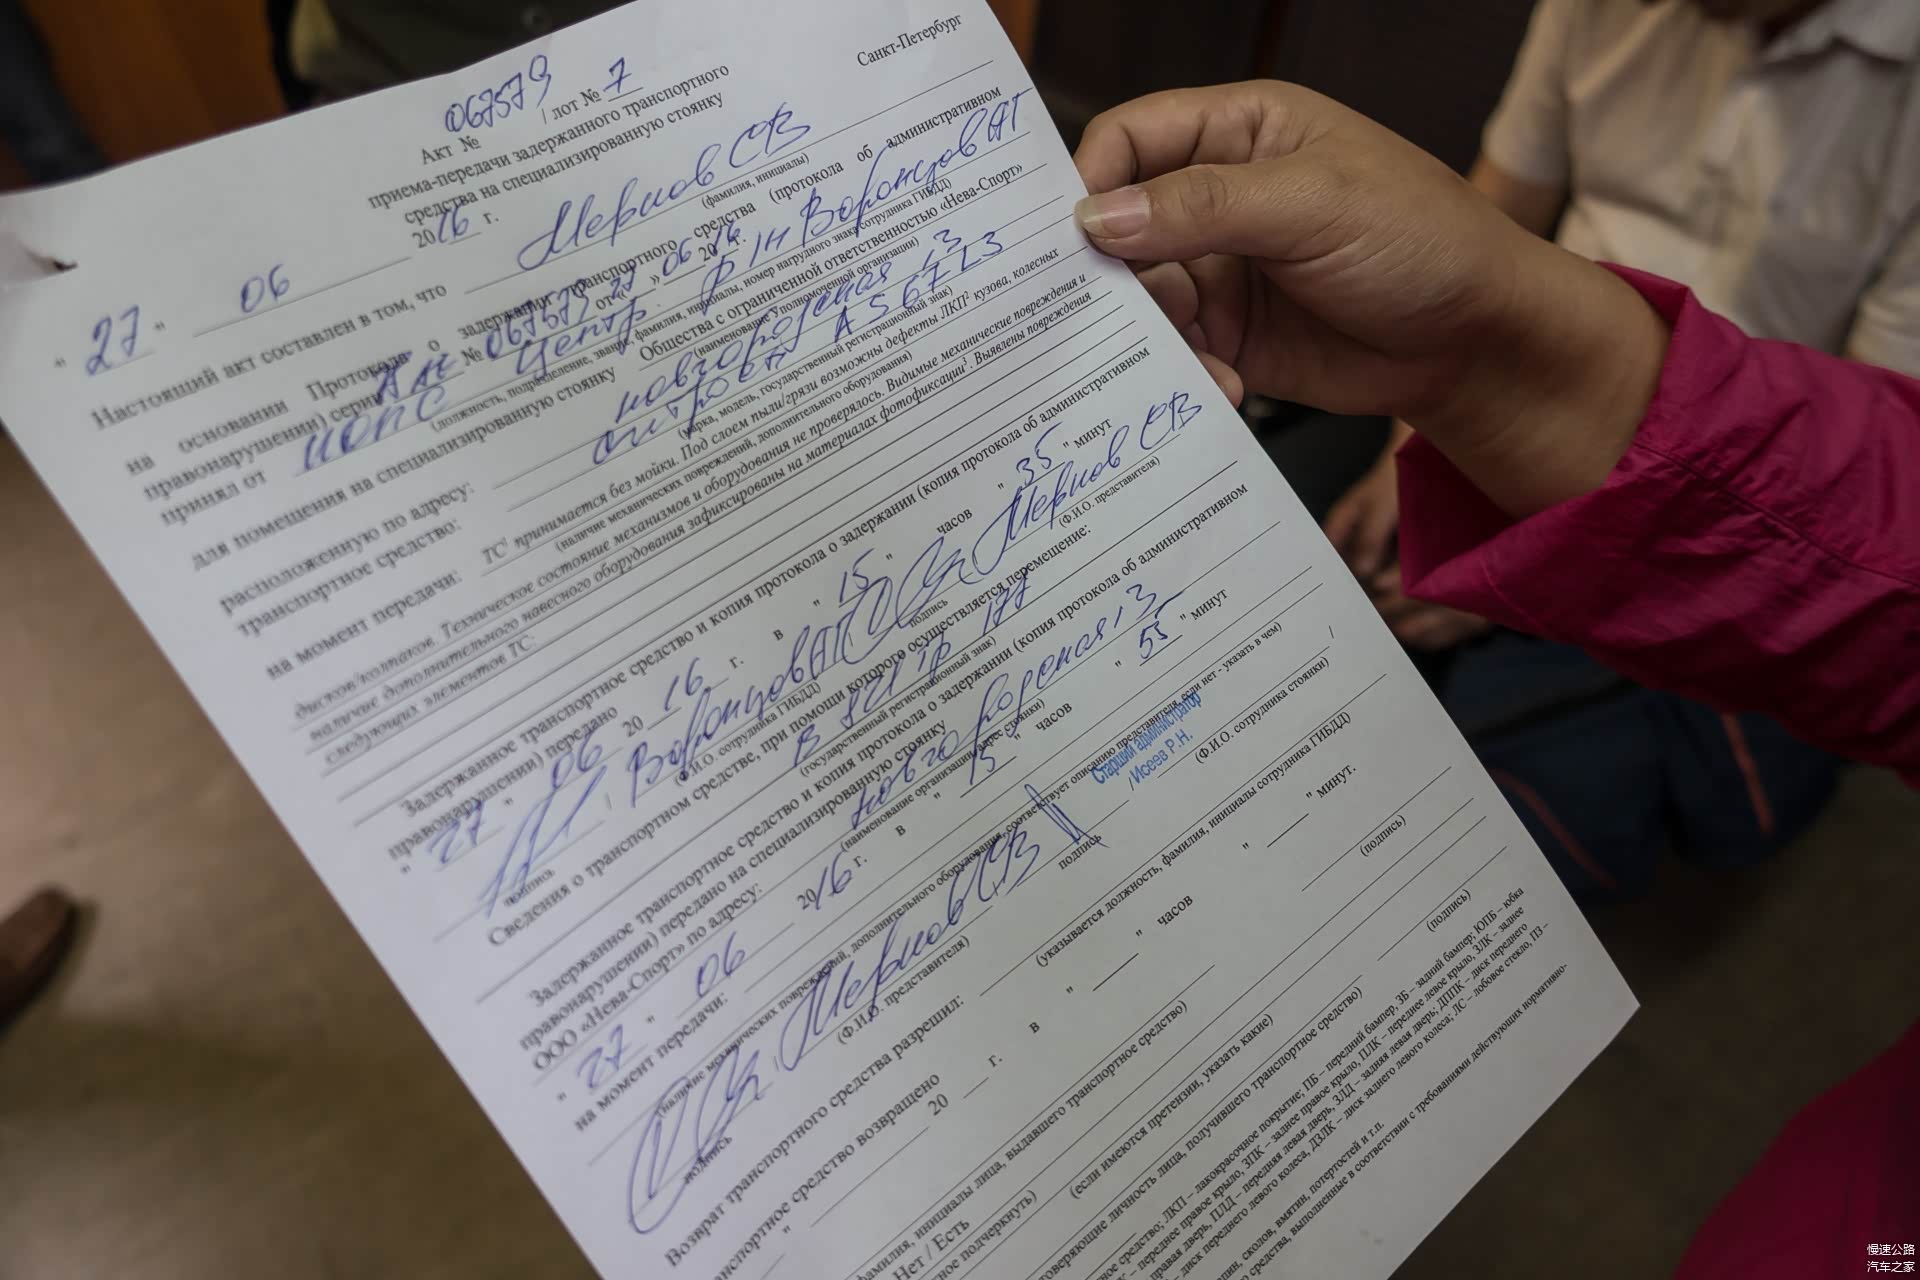 Санкт-Петербург
Акт № 067579 / лот № 7
приема-передачи задержанного транспортного
средства на специализированную стоянку
" 27 " 06 2016 г.
Настоящий акт составлен в том, что Мернов СВ
(фамилия, инициалы)
на основании Протокола о задержании транспортного средства (протокола об административном
правонарушении) серия АК № 067579 от « 27 » 06 2016 г.
принял от Центр. Воронцов АГ
(должность, подразделение, звание, фамилия, инициалы, номер нагрудного знака сотрудника ГИБДД)
для помещения на специализированную стоянку Общества с ограниченной ответственностью «Нева-Спорт»
(наименование уполномоченной организации)
расположенную по адресу: новгородская 13
транспортное средство: А 567
(марка, модель, государственный регистрационный знак)
на момент передачи: ТС¹ принимается без мойки. Под слоем пыли/грязи возможны дефекты ЛКП² кузова, колесных
(наличие механических повреждений, дополнительного оборудования)
дисков/колпаков. Техническое состояние механизмов и оборудования не проверялось. Видимые механические повреждения и
наличие дополнительного навесного оборудования зафиксированы на материалах фотофиксации³. Выявлены повреждения
следующих элементов ТС:
Задержанное транспортное средство и копия протокола о задержании (копия протокола об административном
правонарушении) передано
" 27 " 06 2016 г. в " 15 " часов " 35 " минут
/ Воронцов АГ Мернов СВ
подпись (Ф.И.О. сотрудника ГИБДД) подпись (Ф.И.О. представителя)
Сведения о транспортном средстве, при помощи которого осуществляется перемещение:
В 821 177
(государственный регистрационный знак)
Задержанное транспортное средство и копия протокола о задержании (копия протокола об административном
правонарушении) передано на специализированную стоянку
ООО «Нева-Спорт» по адресу: новгородская 13
(наименование организации, адрес стоянки)
" 27 " 06 2016 г. в " 15 " часов " 55 " минут
на момент передачи:
(наличие механических повреждений, дополнительного оборудования, соответствует описанию представителя, если нет - указать в чем)
Старший администратор
/Исеев Р.Н. /
/ Мернов СВ
подпись (Ф.И.О. представителя) подпись (Ф.И.О. сотрудника стоянки)
Возврат транспортного средства разрешил:
(указывается должность, фамилия, инициалы сотрудника ГИБДД)
транспортное средство возвращено
" 20 г. в " " часов " " минут.
фамилия, инициалы лица, выдавшего транспортное средство) (подпись)
Нет / Есть
подчеркнуть) (если имеются претензии, указать какие)
личность лица, получившего транспортное средство) (подпись)
средство; ЛКП – лакокрасочное покрытие; ПБ – передний бампер, ЗБ – задний бампер; ЮПБ – юбка
переднее правое крыло, ЗПК – заднее правое крыло, ПЛК – переднее левое крыло, ЗЛК – заднее
правая дверь, ПЛД – передняя левая дверь, ЗЛД – задняя левая дверь; ДППК – диск переднего
диск переднего левого колеса, ДЗЛК – диск заднего левого колеса; ЛС – лобовое стекло, ПЗ –
сколов, вмятин, потертостей и т.п.
средства, выполненные в соответствии с требованиями действующих нормативно-
慢速公路
汽车之家